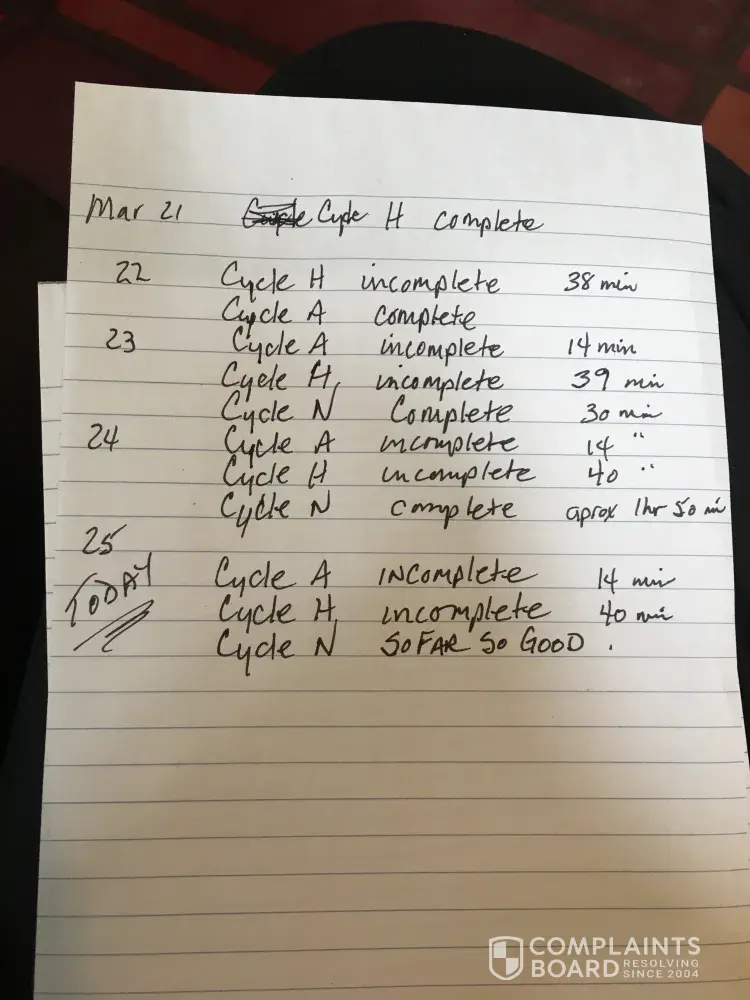 Mar 21 Cycle H complete
22 Cycle H incomplete 38 min
Cycle A complete
23 Cycle A incomplete 14 min
Cycle H, incomplete 39 min
Cycle N Complete 30 min
24 Cycle A incomplete 14 "
Cycle H incomplete 40 "
Cycle N complete aprox 1hr 50 min
25
TODAY Cycle A INComplete 14 min
Cycle H, incomplete 40 min
Cycle N SO FAR SO GOOD .
COMPLAINTS
BOARD RESOLVING SINCE 2004